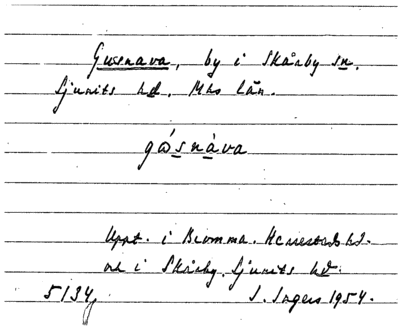 Gussnava, by i Skårby sn.
Ljunits hd. Mhs län.
gåsnáva
Uppt. i Bromma. Herrestads hd.
och i Skårby. Ljunits hd.
5134 I. Ingers 1954.